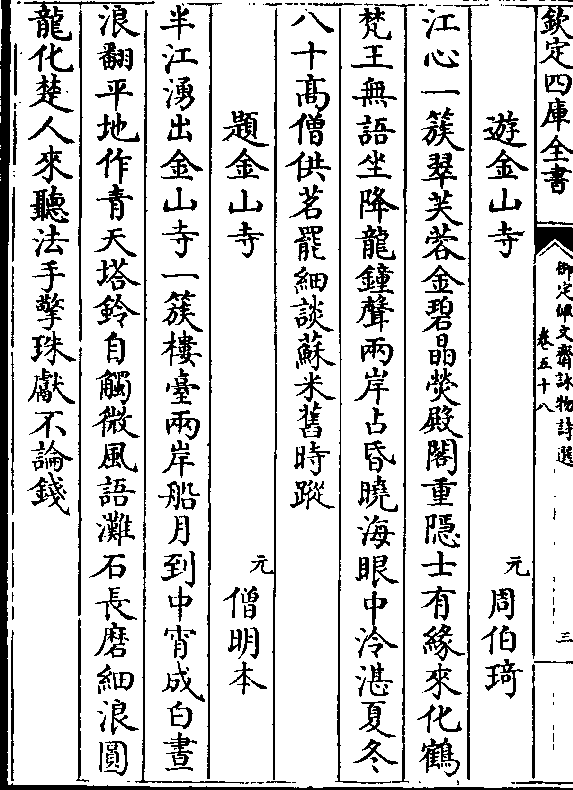 欽定四庫全書
御定佩文齋詠物詩選
卷五十八
三
遊金山寺
元
周伯琦
江心一簇翠芙蓉金碧晶熒殿閣重隱士有緣來化鶴
梵王無語坐降龍鐘聲兩岸占昏曉海眼中泠湛夏冬
八十髙僧供茗罷細談蘇米舊時蹤
題金山寺
元
僧明本
半江湧出金山寺一簇樓臺兩岸船月到中宵成白晝
浪翻平地作青天塔鈴自觸微風語灘石長磨細浪圓
龍化楚人來聽法手擎珠獻不論錢